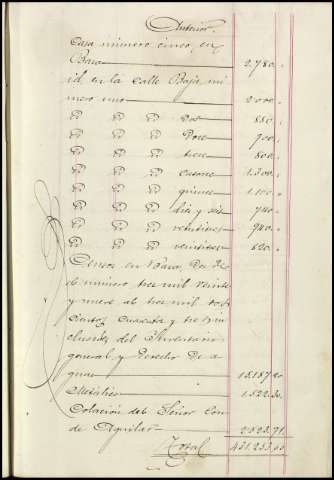 Anterior.
Casa número cinco, en
Baro 2.780.
id. en la calle Baja, nú
mero uno 2.000.
id id id dos 880.
id id id Doce 900.
id id id trece 800.
id id id catorce 1.300.
id id id quince 1.100.
id id id diez y seis 740.
id id id veintiuno 940.
id id id veintitres 620.
Censos en Baro, des
de número tres mil veinte
y nueve al tres mil tres
cientos cuarenta y tres in
clusives del Inventario
general, y derecho de a
guas 13.187,20
Metálico 1.822,30
Colación del Señor Con
de Aguilar 2.023,71
Total 431.233,60